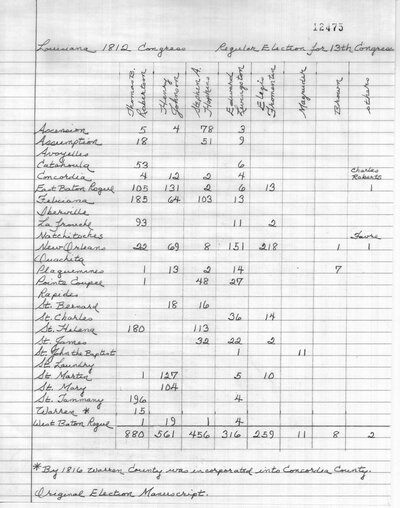 12475
Louisiana 1812 Congress Regular Election for 13th Congress
Thomas B. Robertson Henry Johnson Stephen A. Hopkins Edward Livingston Elegis Fromentin Magruder Brown others
Ascension 5 4 78 3
Assumption 18 51 9
Avoyelles
Catahoula 53 6
Concordia 4 12 2 4 Charles Roberts
East Baton Rogue 105 131 2 6 13 1
Feliciana 185 64 103 13
Iberville
La Fourche 93 11 2
Natchitoches Favre
New Orleans 22 69 8 151 218 1 1
Ouachita
Plaquemines 1 13 2 14 7
Pointe Coupee 1 48 27
Rapides
St. Bernard 18 16
St. Charles 36 14
St. Helena 180 113
St. James 32 22 2
St. John the Baptist 1 11
St. Laundry
St. Martin 1 127 5 10
St. Mary 104
St. Tammany 196 4
Warren * 15
West Baton Rogue 1 19 1 4
880 561 456 316 259 11 8 2
* By 1816 Warren County was incorporated into Concordia County.
Original Election Manuscript.